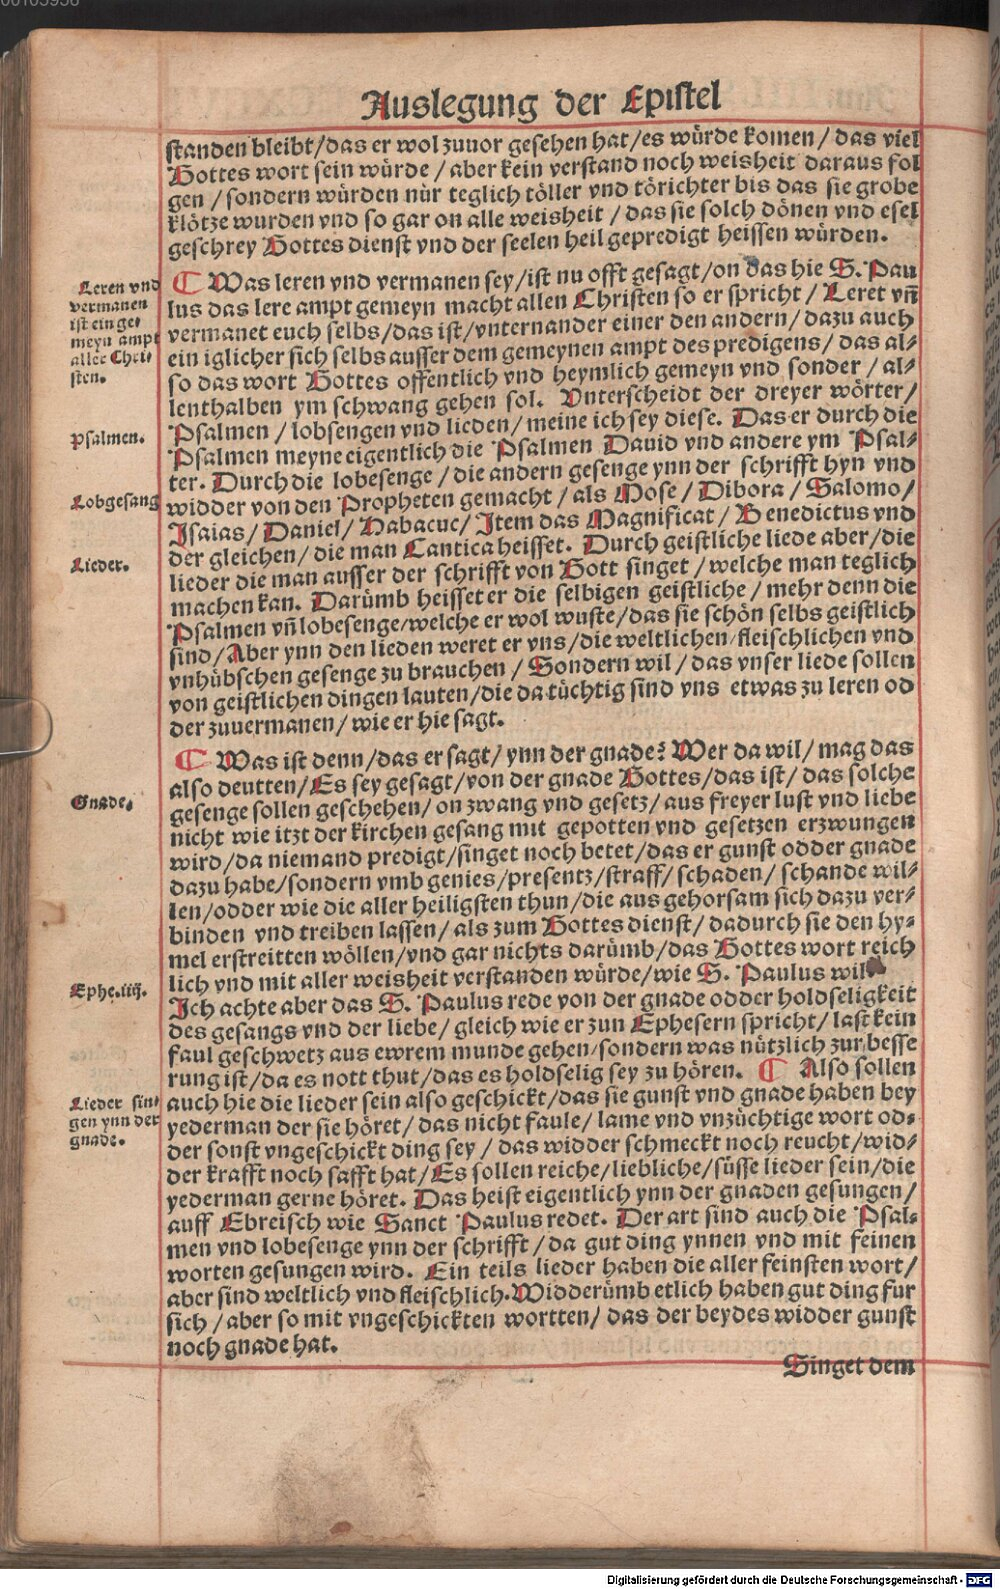 00105956
Auslegung der Epistel
standen bleibt/das er wol zuuor gesehen hat/es würde komen/das viel
Gottes wort sein würde/aber kein verstand noch weisheit daraus fol
gen/sondern würden nür teglich töller vnd törichter bis das sie grobe
klötze wurden vnd so gar on alle weisheit/das sie solch dönen vnd esel
geschrey Gottes dienst vnd der seelen heil gepredigt heissen würden.
Leren vnd
vermanen
ist ein ge-
meyn ampt
aller Chri-
sten.
¶ Was leren vnd vermanen sey/ist nu offt gesagt/on das hie S. Pau
lus das lere ampt gemeyn macht allen Christen so er spricht/Leret vñ
vermanet euch selbs/das ist/vnternander einer den andern/dazu auch
ein iglicher sich selbs ausser dem gemeynen ampt des predigens/das al-
so das wort Gottes offentlich vnd heymlich gemeyn vnd sonder/al-
lenthalben ym schwang gehen sol. Vnterscheidt der dreyer wörter/
Psalmen.
Psalmen/lobsengen vnd lieden/meine ich sey diese. Das er durch die
Psalmen meyne eigentlich die Psalmen Dauid vnd andere ym Psal-
ter. Durch die lobesenge/die andern gesenge ynn der schrifft hyn vnd
Lobgesang
widder von den Propheten gemacht/als Mose/Dibora/Salomo/
Isaias/Daniel/Habacuc/Item das Magnificat/Benedictus vnd
der gleichen/die man Cantica heisset. Durch geistliche liede aber/die
Lieder.
lieder die man ausser der schrifft von Gott singet/welche man teglich
machen kan. Darümb heisset er die selbigen geistliche/mehr denn die
Psalmen vñ lobesenge/welche er wol wuste/das sie schön selbs geistlich
sind/Aber ynn den lieden weret er vns/die weltlichen/fleischlichen vnd
vnhübschen gesenge zu brauchen/Sondern wil/das vnser liede sollen
von geistlichen dingen lauten/die da tüchtig sind vns etwas zu leren od
der zuuermanen/wie er hie sagt.
¶ Was ist denn/das er sagt/ynn der gnade? Wer da wil/mag das
also deutten/Es sey gesagt/von der gnade Gottes/das ist/das solche
Gnade.
gesenge sollen geschehen/on zwang vnd gesetz/aus freyer lust vnd liebe
nicht wie itzt der kirchen gesang mit gepotten vnd gesetzen erzwungen
wird/da niemand predigt/singet noch betet/das er gunst odder gnade
dazu habe/sondern vmb genies/presentz/straff/schaden/schande wil-
len/odder wie die aller heiligsten thun/die aus gehorsam sich dazu ver-
binden vnd treiben lassen/als zum Gottes dienst/dadurch sie den hy-
mel erstreitten wöllen/vnd gar nichts darümb/das Gottes wort reich
lich vnd mit aller weisheit verstanden würde/wie S. Paulus wil
Ephe.iiij.
Ich achte aber das S. Paulus rede von der gnade odder holdseligkeit
des gesangs vnd der liebe/gleich wie er zun Ephesern spricht/last kein
faul geschwetz aus ewrem munde gehen/sondern was nützlich zur besse
rung ist/da es nott thut/das es holdselig sey zu hören. ¶ Also sollen
Lieder sin-
gen ynn der
gnade.
auch hie die lieder sein also geschickt/das sie gunst vnd gnade haben bey
yederman der sie höret/das nicht faule/lame vnd vnzüchtige wort od-
der sonst vngeschickt ding sey/das widder schmeckt noch reucht/wid-
der krafft noch safft hat/Es sollen reiche/liebliche/süsse lieder sein/die
yederman gerne höret. Das heist eigentlich ynn der gnaden gesungen/
auff Ebreisch wie Sanct Paulus redet. Der art sind auch die Psal-
men vnd lobesenge ynn der schrifft/da gut ding ynnen vnd mit feinen
worten gesungen wird. Ein teils lieder haben die aller feinsten wort/
aber sind weltlich vnd fleischlich. Widderümb etlich haben gut ding fur
sich/aber so mit vngeschickten wortten/das der beydes widder gunst
noch gnade hat.
Singet dem
Digitalisierung gefördert durch die Deutsche Forschungsgemeinschaft - DFG